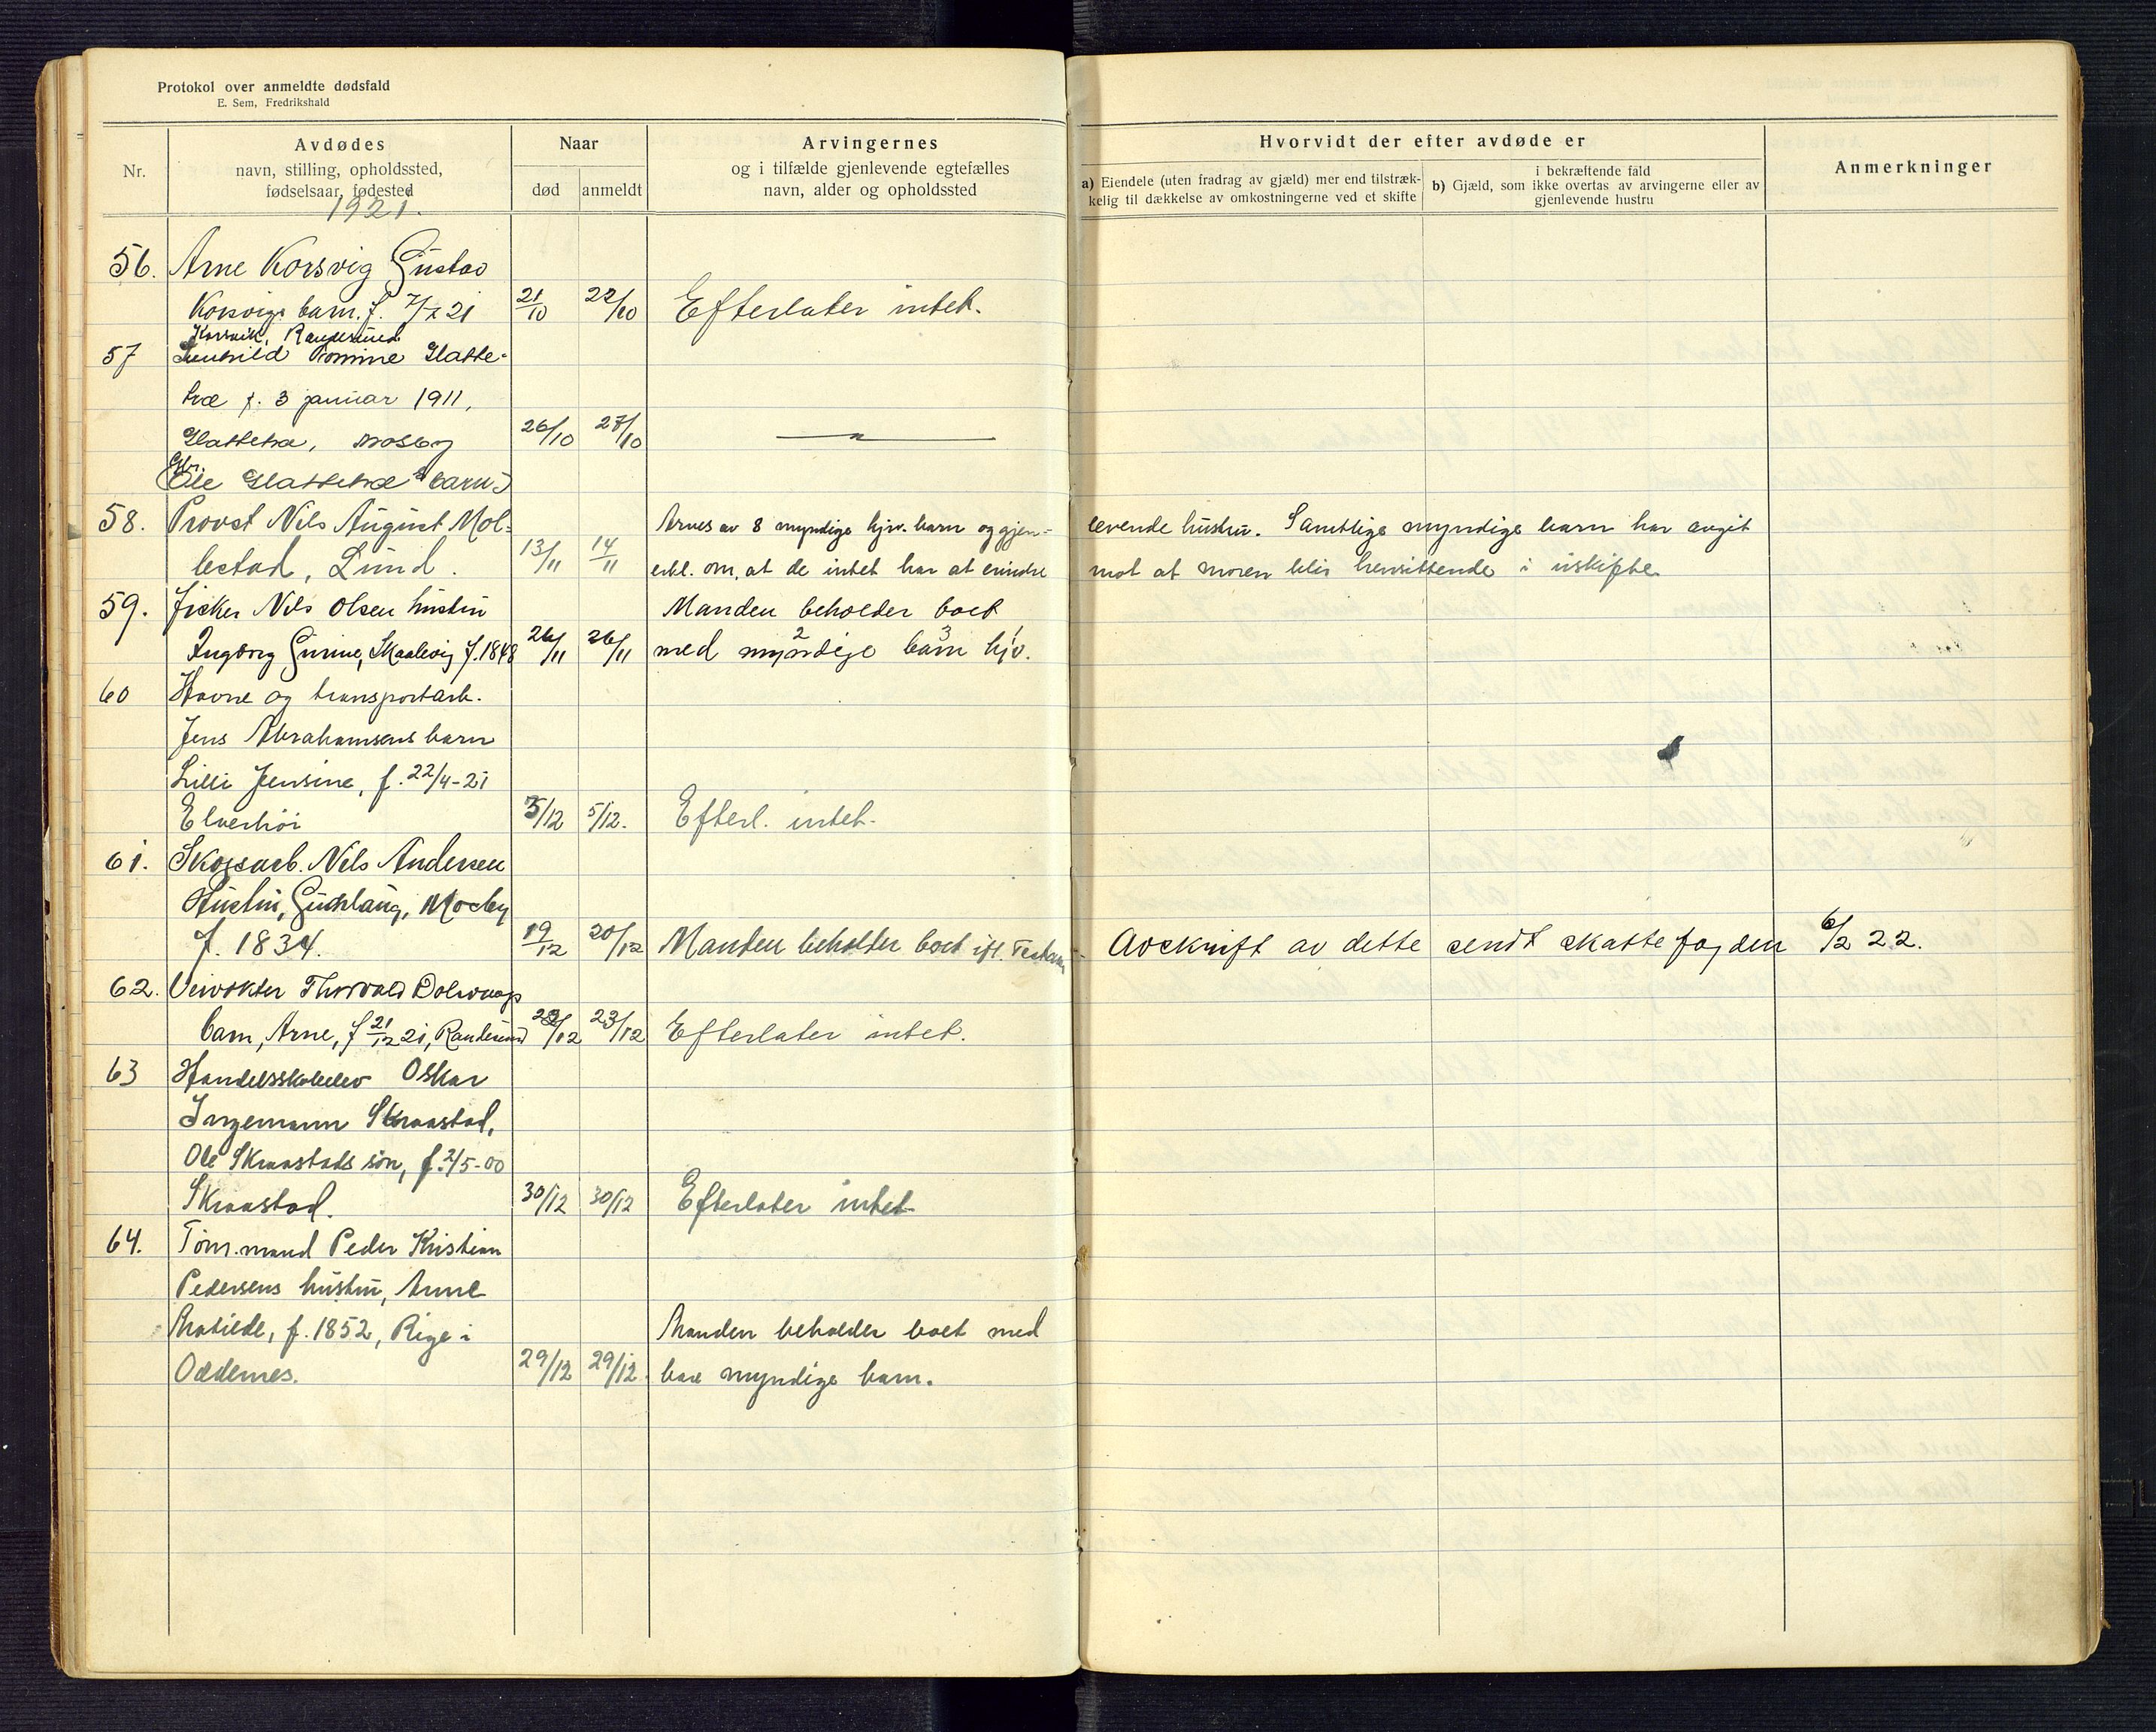 Protokol over anmeldte dødsfald
E. Sem, Fredrikshald
Nr.
Avdødes
navn, stilling, opholdssted,
fødselsaar, fødested
Naar
død
anmeldt
Arvingernes
og i tilfælde gjenlevende egtefælles
navn, alder og opholdssted
Hvorvidt der efter avdøde er
a) Eiendele (uten fradrag av gjæld) mer end tilstræk-
kelig til dækkelse av omkostningerne ved et skifte
i bekræftende fald
b) Gjæld, som ikke overtas av arvingerne eller av
gjenlevende hustru
Anmerkninger
1921.
56. Arne Korsvig Gustav
Korsvigs barn. f. 7/ 21 21/10 22/10 Efterlater intet.
Korsvik, Randesund
57 Glatte-
træ f. 3 januar 1911,
Glattetræ, Mosby 26/10 27/10 — " —
Ole Glattetræ's barn
58. Provst Nils August Mol- Arves av 8 myndige hjv. barn og gjen- levende hustru. Samtlige myndige barn har avgit
lestad, Lund. 13/11 14/11 erkl. om, at de intet har at erindre mot at moren blir hensittende i uskifte
59. Fisker Nils Olsen hustru Manden beholder boet
Ingborg Gurine, Skaalevig f. 1848 26/11 26/11 med myndige 2 barn 3 hjv. 1
60 Havne og transportarb.
Jens Abrahamsens barn
Lilli Jensine, f. 22/4-21
Elverhøi 5/12 5/12. Efterl. intet.
61. Skogsarb. Nils Andersen
Hustru, Gunlaug, Mosby
f. 1834. 19/12 20/12 Manden beholder boet ifl. Testam- Avskrift av dette sendt skattefogden 6/2 22.
62. Veivokter Thorvald Dolvaags
barn, Arne, f 21/12 21, Randesund 23/12 23/12 Efterlater intet.
63 Handelsskoleelev Oskar
Ingemann Skraastad,
Ole Skraastads søn, f. 2/5-00
Skraastad. 30/12 30/12 Efterlater intet
64. Tøm.mand Peder Kristian
Pedersens hustru, Anne
Matilde, f. 1852, Rige i Manden beholder boet med
Oddernes. 29/12 29/12. bare myndige barn.